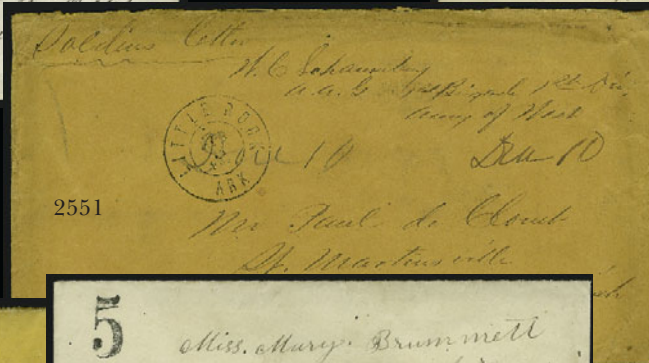 Soldiers letter
W. C. Schaumburg
A. A. G. Brigade 1st Div.
Army of West
LITTLE ROCK
ARK
Due 10
Due 10
2551
Mr Paul de Clouet
St. Martinsville
5
Miss. Mary. Brummett